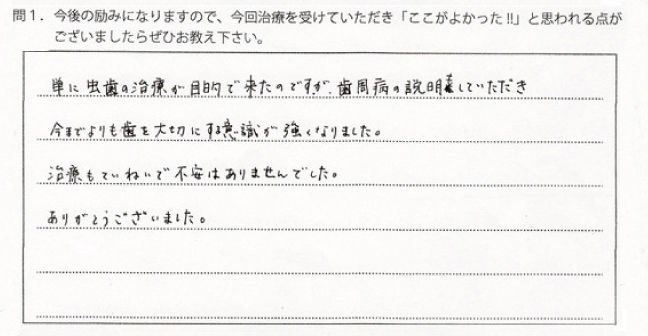 問1. 今後の励みになりますので、今回治療を受けていただき「ここがよかった!!」と思われる点が
ございましたらぜひお教え下さい。
単に虫歯の治療が目的で来たのですが、歯周病の説明をしていただき
今までよりも歯を大切にする意識が強くなりました。
治療もていねいで不安はありませんでした。
ありがとうございました。